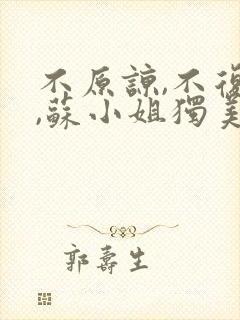 不原諒,不復
,蘇小姐獨美
郭壽生